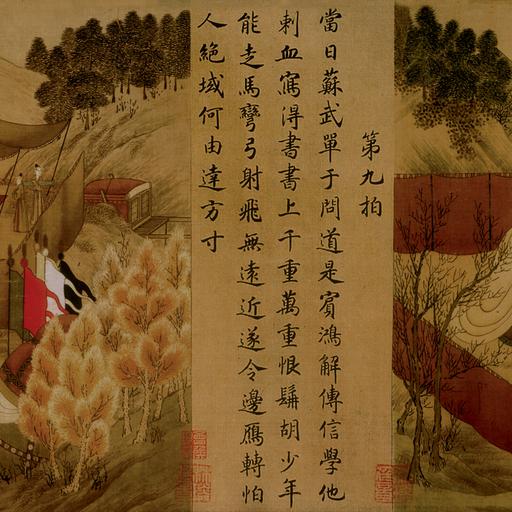 第九拍
當日蘇武單于問道是賓鴻解傳信學他
刺血寫得書書上千重萬重恨髯胡少年
能走馬彎弓射飛無遠近遂令邊鴈轉怕
人絶域何由達方寸